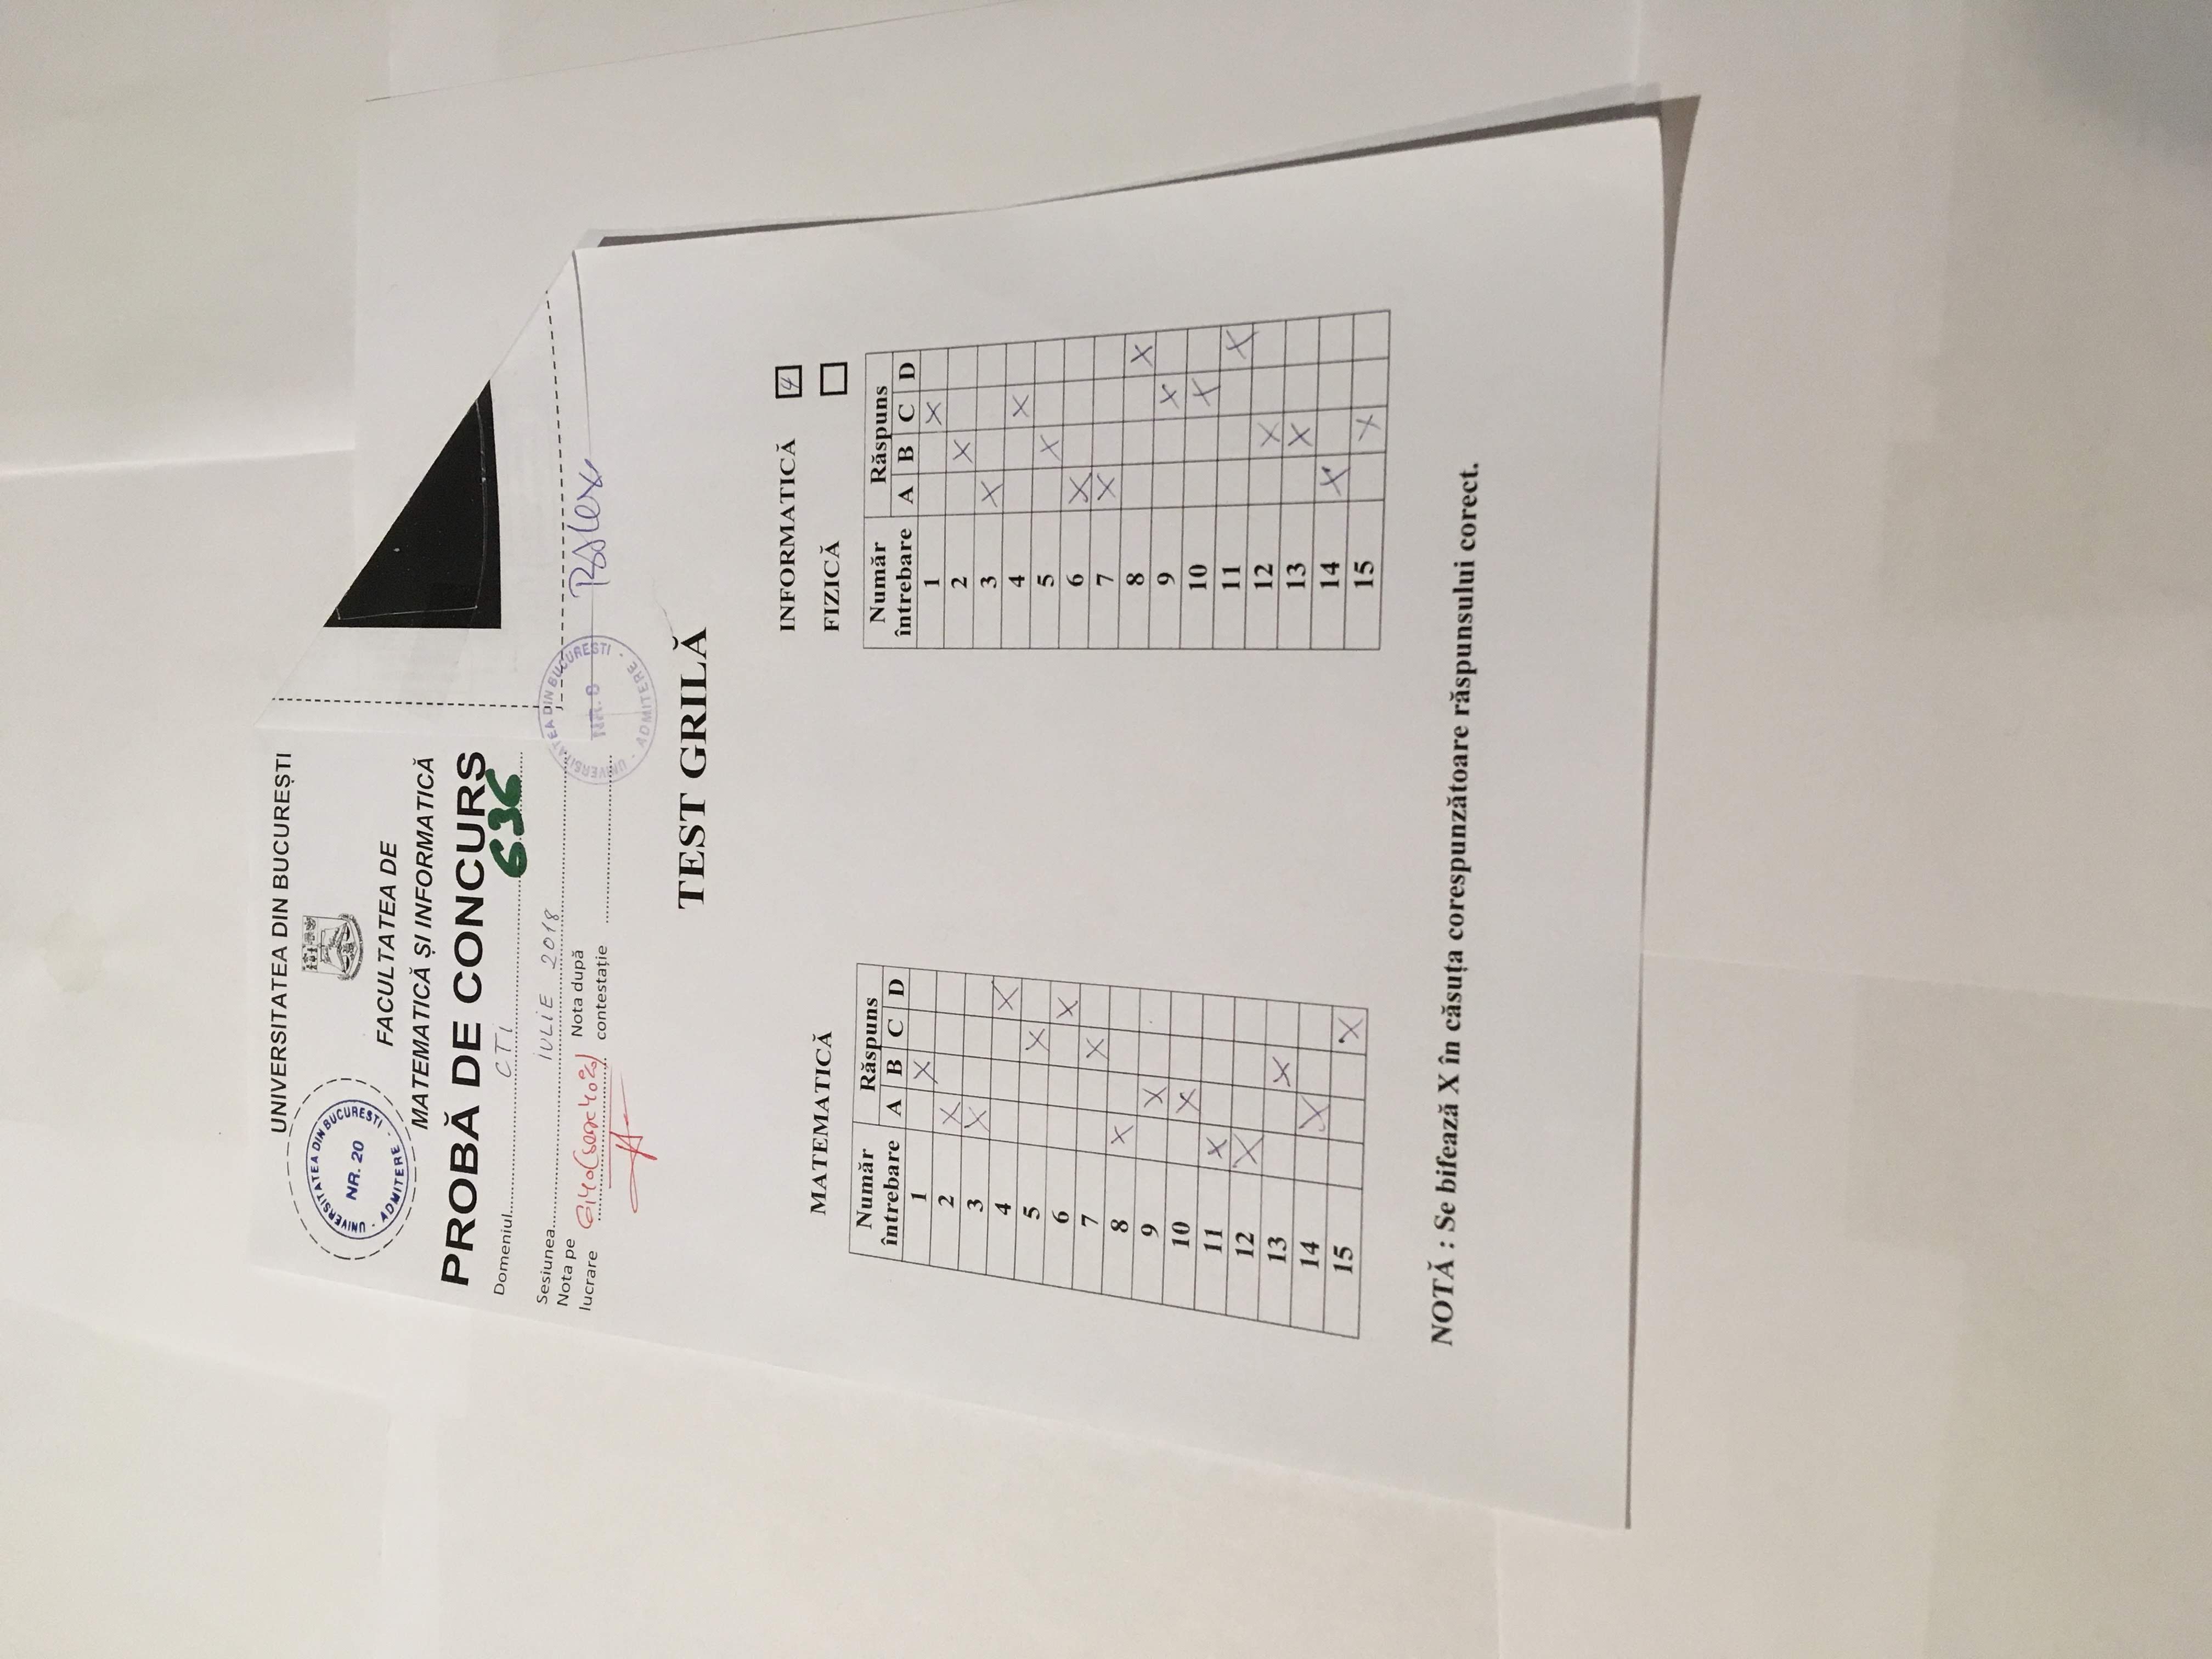 UNIVERSITATEA DIN BUCUREȘTI
UNIVERSITATEA DIN BUCUREȘTI
NR. 20
- ADMITERE -
FACULTATEA DE
MATEMATICĂ ȘI INFORMATICĂ
PROBĂ DE CONCURS
Domeniul CTI 636
Sesiunea IULIE 2018
Nota pe lucrare 6,40 (șase 40%) Nota după contestație
UNIVERSITATEA DIN BUCUREȘTI
NR. 8
- ADMITERE -
TEST GRILĂ
MATEMATICĂ
Număr întrebare Răspuns
A B C D
1 X
2 X
3 X
4 X
5 X
6 X
7 X
8 X
9 X
10 X
11 X
12 X
13 X
14 X
15 X
INFORMATICĂ 4
FIZICĂ
Număr întrebare Răspuns
A B C D
1 X
2 X
3 X
4 X
5 X
6 X
7 X
8 X
9 X
10 X
11 X
12 X
13 X
14 X
15 X
NOTĂ : Se bifează X în căsuța corespunzătoare răspunsului corect.